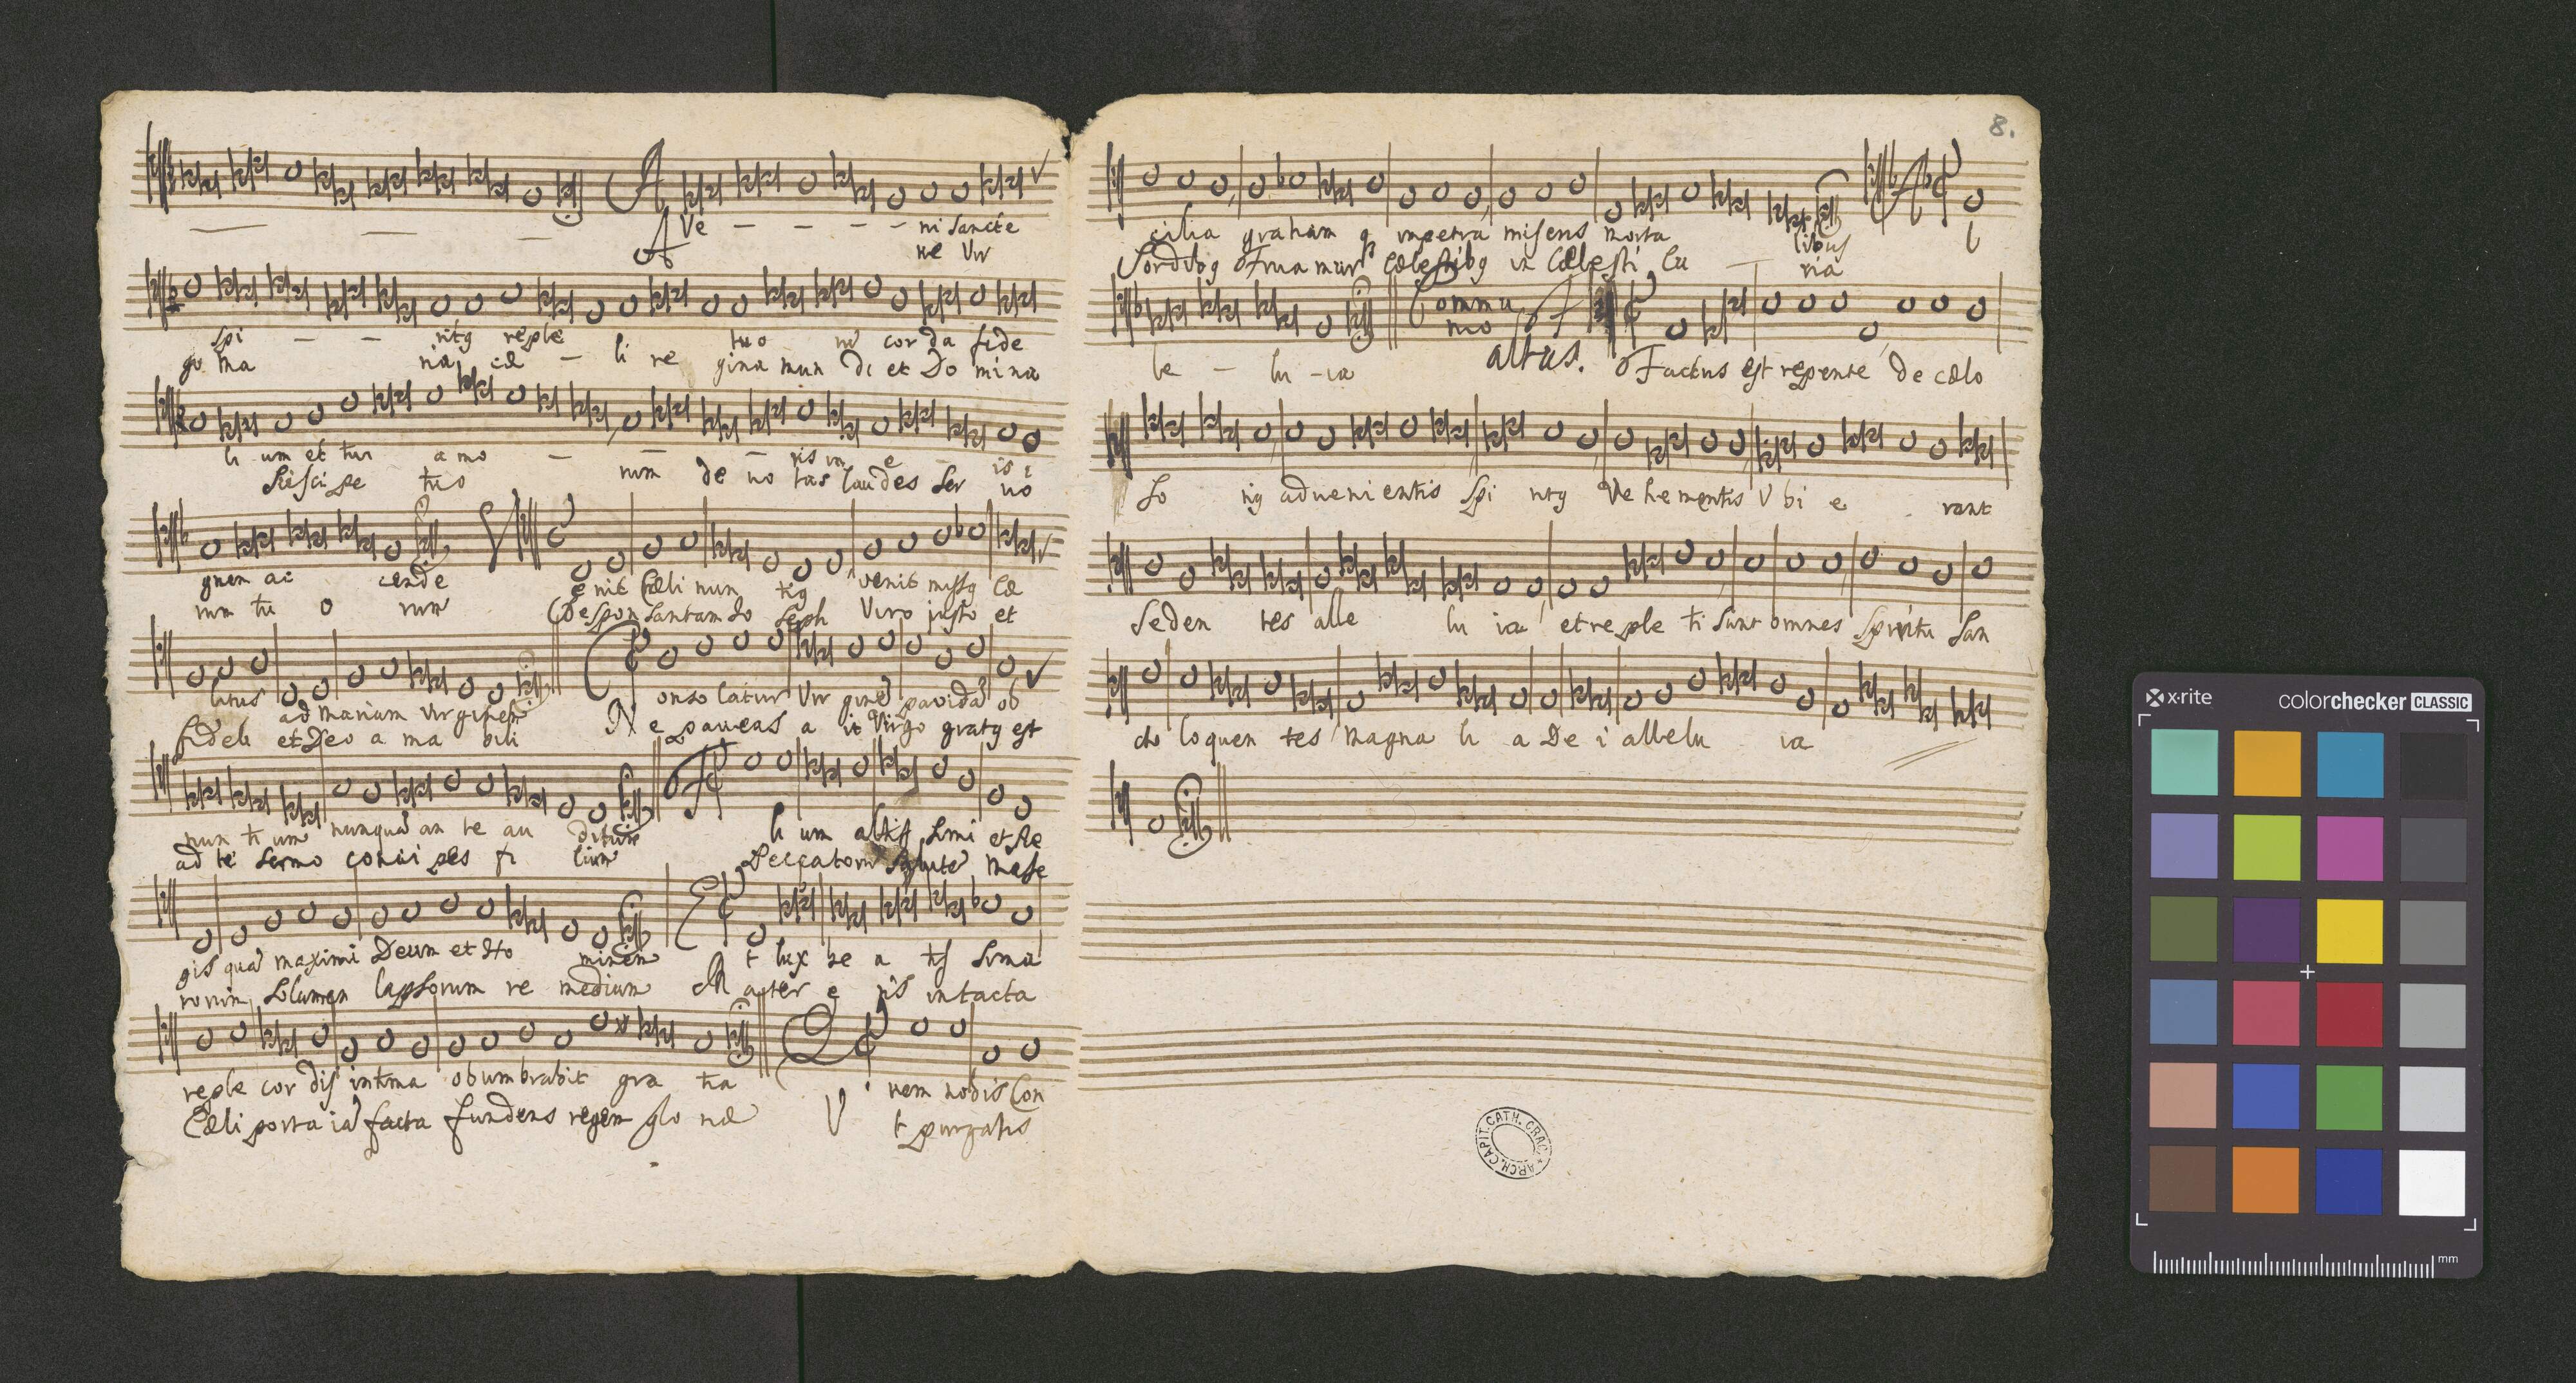 A Ve – – – – ni sancte
A ne Vir
Spi – – ritq reple tuo rũ corda fide
go Ma ria cæ – li re gina mun di et Do mina
li um et tui amo – – – ris in e is i
Suscipe tuo rum de uo tas laudes ser uo
gnem ac cende
rum tu o rum
V enit Cæli nun tiq venit missq Cæ
Desponsantam Jo seph Viro justo et
litus ad Mariam Virginem
fideli et Deo a ma bili
C onsolatur Vir ginẽ pavidã ob
N e paueas a it Virgo gratq est
nun ti um nunquã an te au ditum
ad te sermo conci pies fi lium
F li um altissimi et Re
Peccatorũ salutẽ Mase
gis quã maximi Deum et Ho minem
rorum solumen lapsorum re medium
E t lux be a tis sima
M ater e nis intacta
reple cor dis intima obumbrabit gra tia
Cæli porta iã facta fundens regem glo riæ
Q V i nem nobis Con
t purgatis
8.
cilia gratiam q impetra miseris morta libus
Sordibq Fruamur Cælestibq in Cælesti Cu ria
A l
le – lu – ia
Commu nio
altus.
Factus est repente de cælo
So nq aduenientis Spi ritq Vehementis Vbi e rant
Seden tes alle lu ia et reple ti sunt omnes Spiritu San
cto loquen tes Magna li a De i allelu ia
ARCH. CAPIT. CATH. CRAC.
x·rite
colorchecker CLASSIC
mm